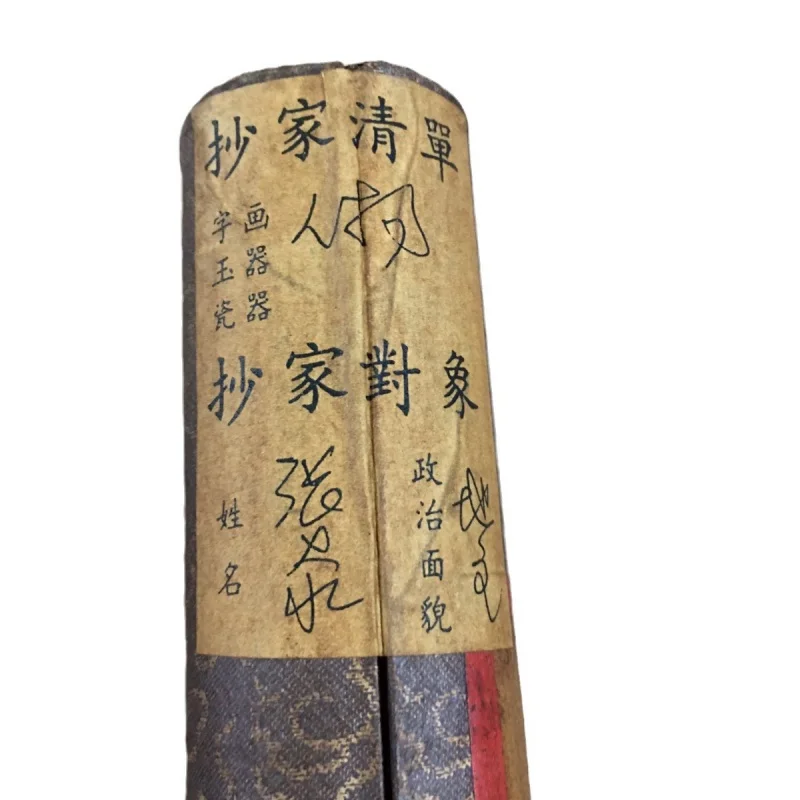 抄家清單
字画 人物
玉器
瓷器
抄家對象
姓名 张
政治面貌 地主